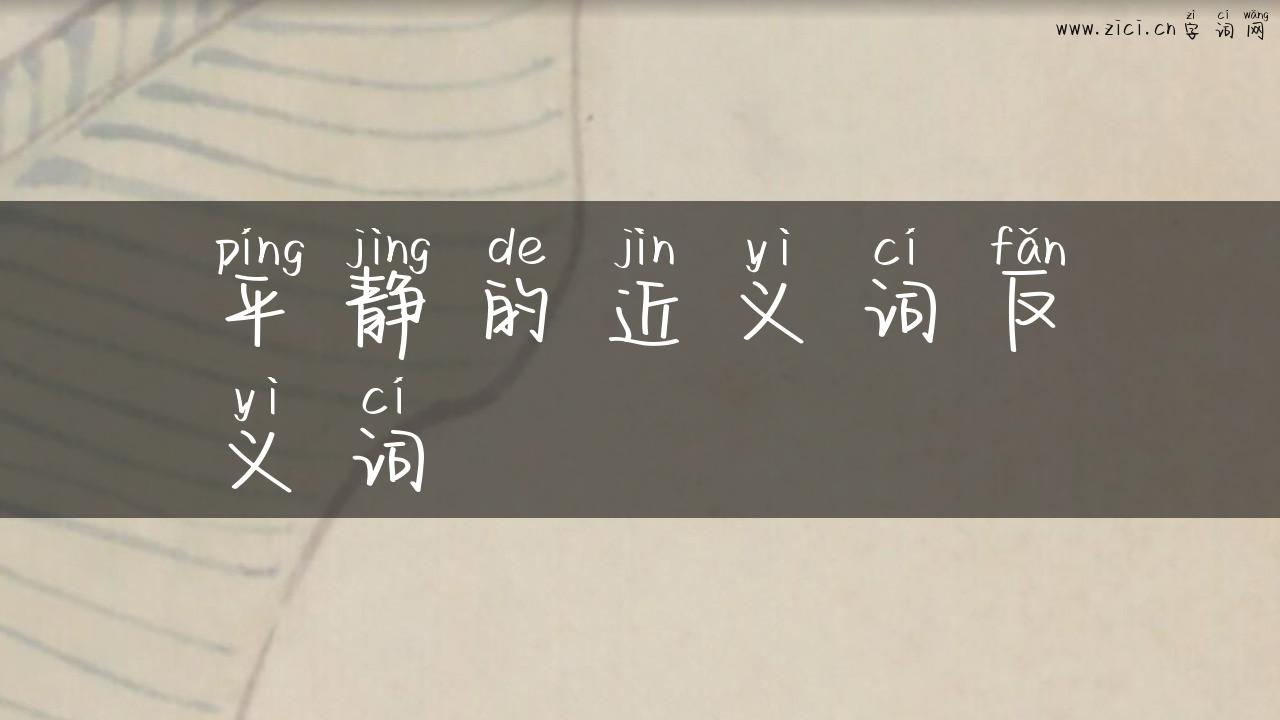 zì cí wǎng
www.zici.cn 字词网
píng jìng de jìn yì cí fǎn
平静的近义词反
yì cí
义词